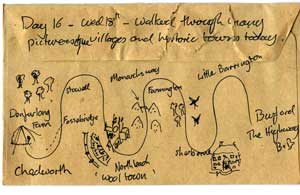 Day 16 - Wed 18th - Walked through many
picturesque villages and historic towns today.
Monarchs way
Little Barrington
Stowell
Farmington
Fossebridge
Farm
Burford
The Highway
B&B
Sherborne
Northleach
'wool town'
Chedworth